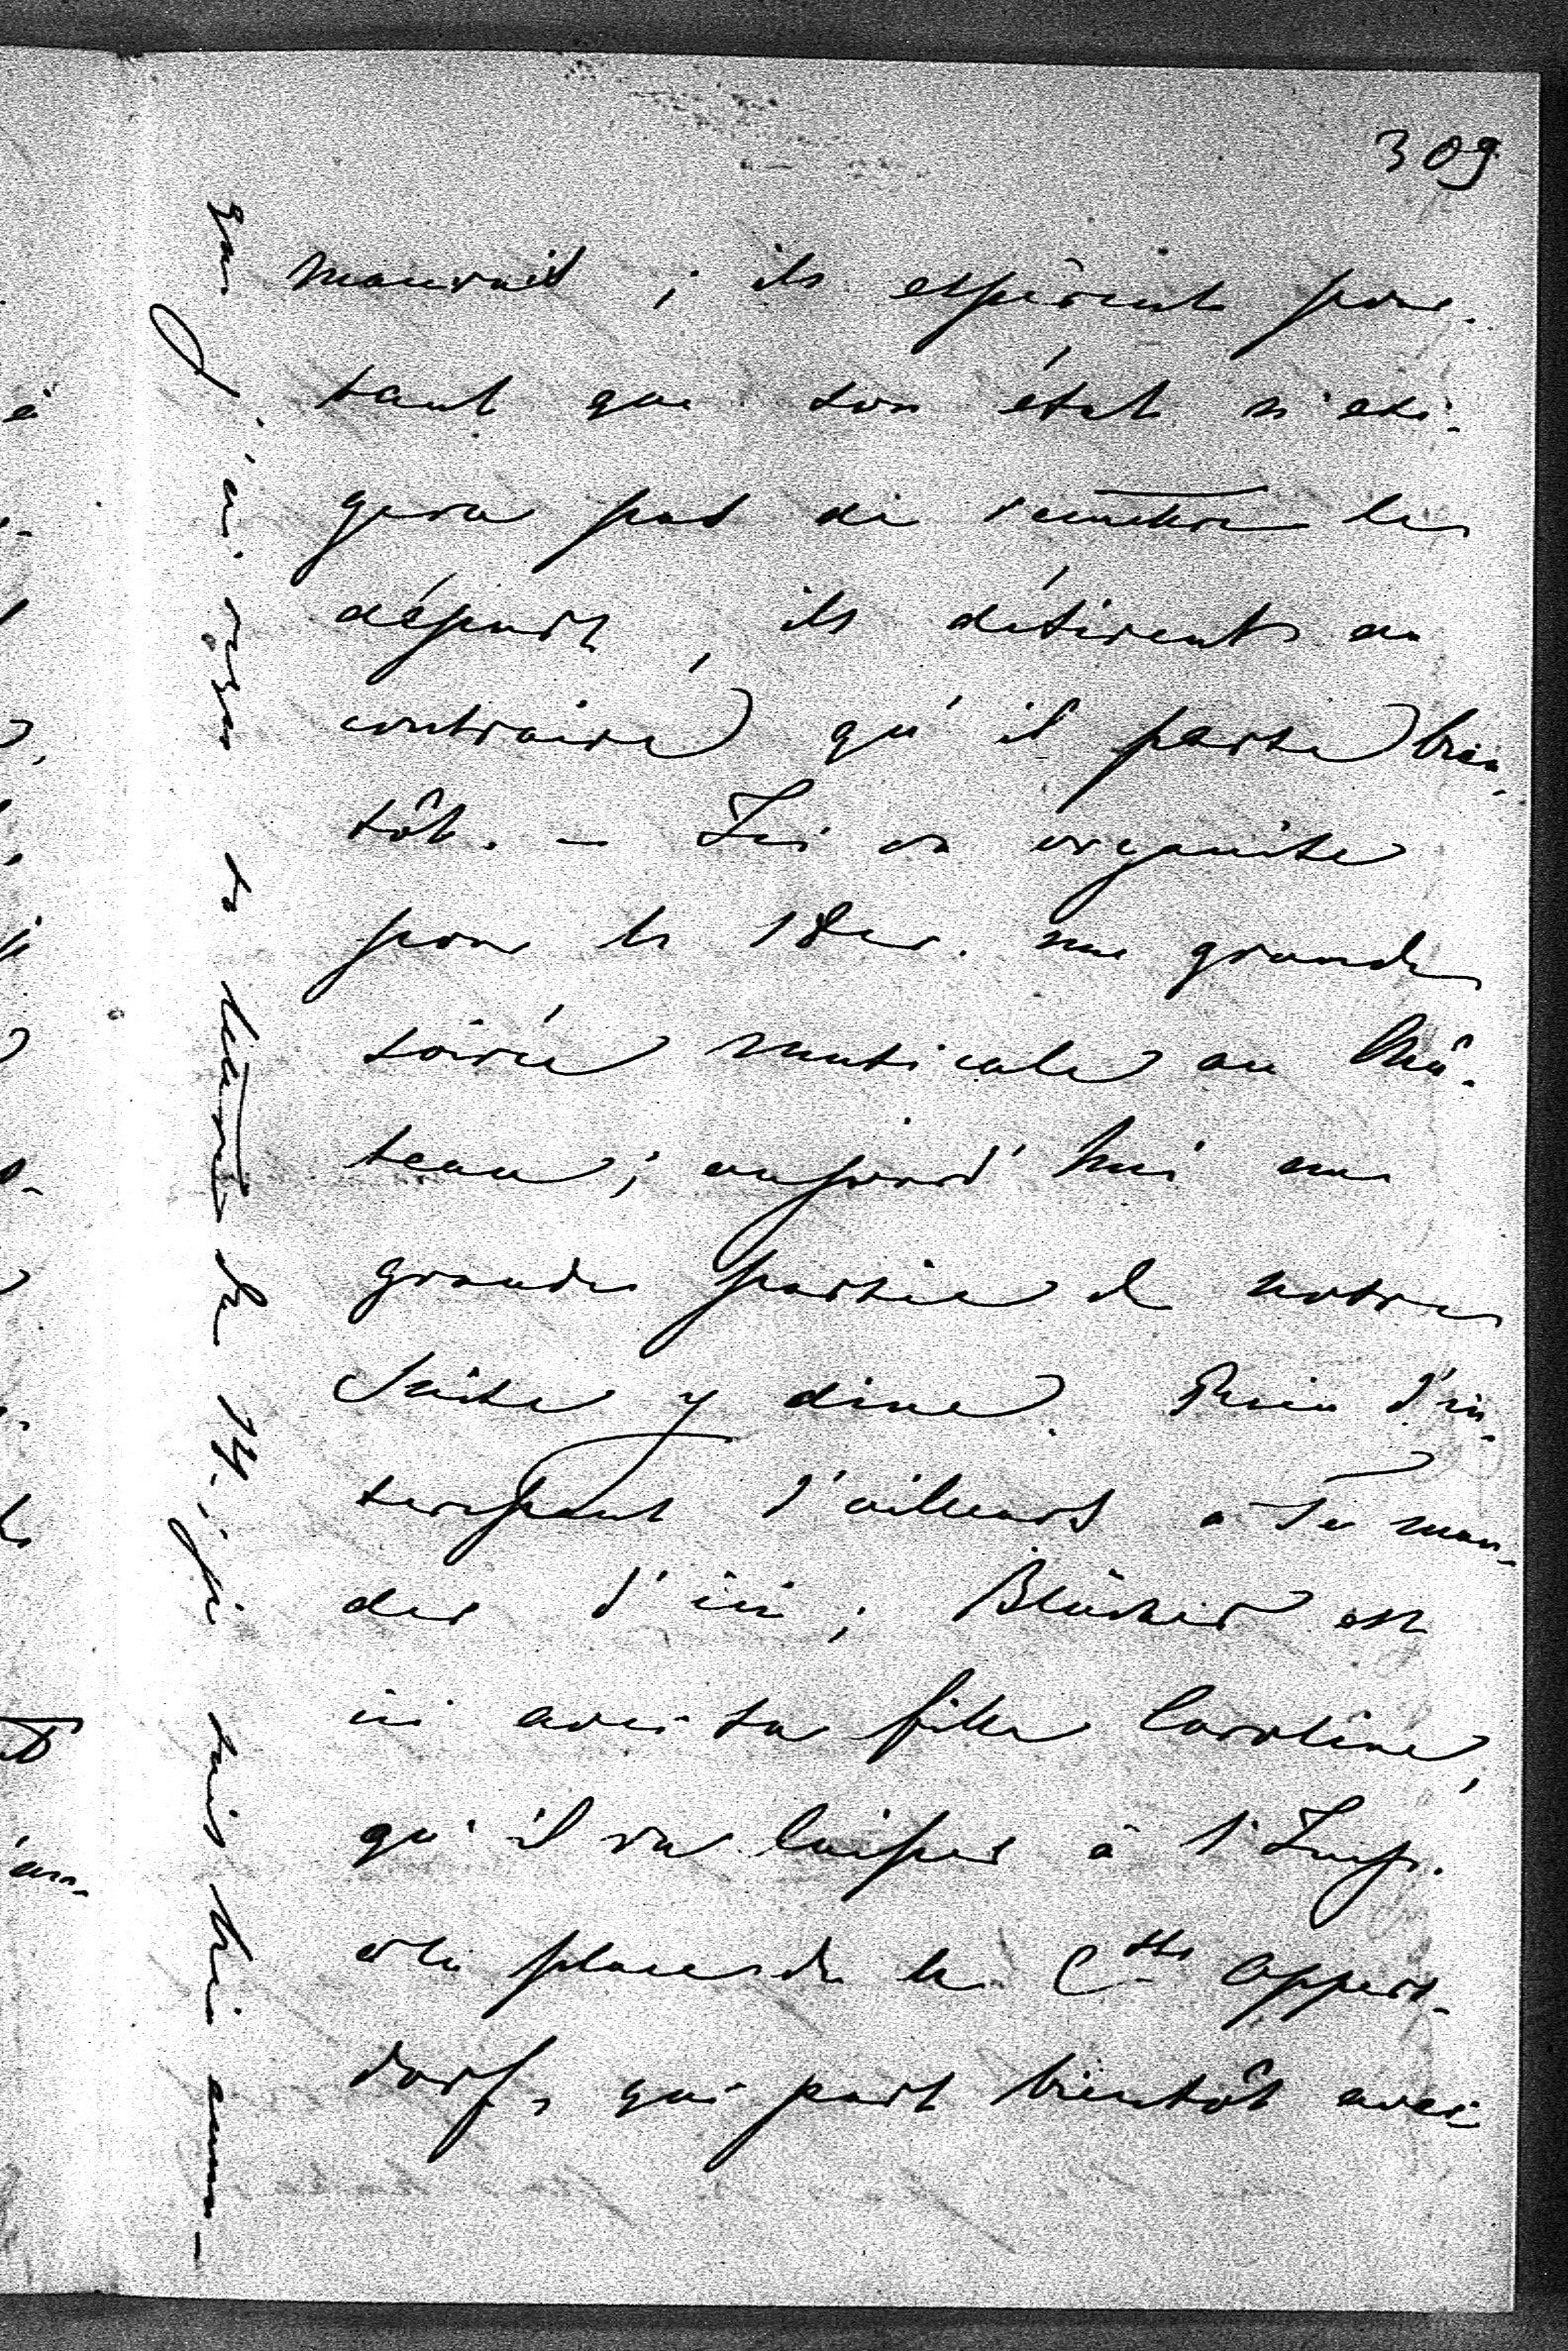 309
mauvais ; ils espèrent pour-
tant que son état n'exi-
gera pas de remettre le
départ, ils désirent au
contraire qu'il parte bien-
tôt. – Ici on organise
pour le 1 Dec. une grande
soirée musicale au Châ-
teau ; aujourd'hui une
grande partie de notre
Suite y dine. Rien d'in-
teressant d'ailleurs à Te man-
der d'ici ; Blücher est
ici avec sa fille Caroline,
qu'il va laisser à l'Imp.
à la place de la Ctsse Oppers-
dorf, qui part bientôt avec
que j'ai reçu ta lettre de 14. ; je